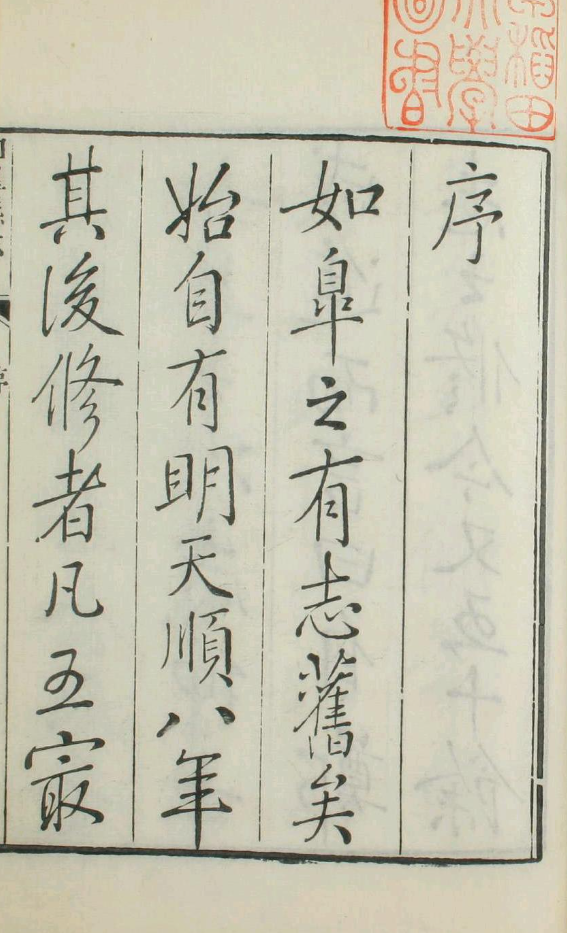 序
如皐之有志舊矣
始自有明天順八年
其後修者凡五㝡